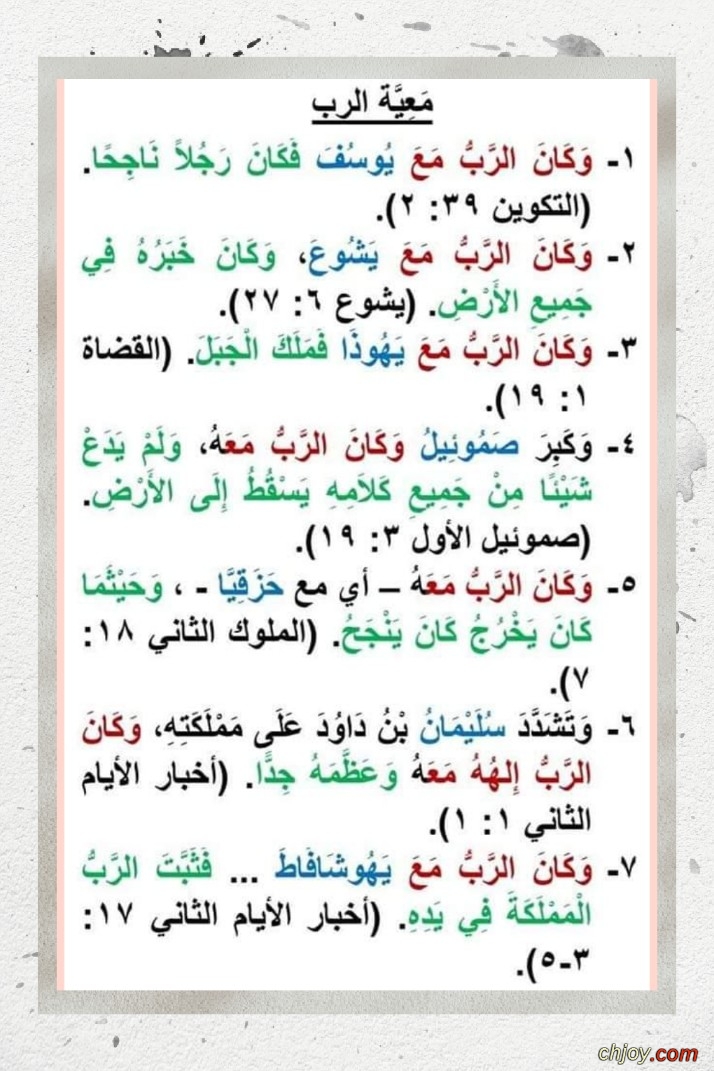 مَعِيَّة الرب
١- وَكَانَ الرَّبُّ مَعَ يُوسُفَ فَكَانَ رَجُلاً نَاجِحًا.
(التكوين ٣٩: ٢).
٢- وَكَانَ الرَّبُّ مَعَ يَشُوعَ، وَكَانَ خَبَرُهُ فِي
جَمِيعِ الأَرْضِ. (يشوع ٦: ٢٧).
٣- وَكَانَ الرَّبُّ مَعَ يَهُوذَا فَمَلَكَ الْجَبَلَ. (القضاة
١: ١٩).
٤- وَكَبِرَ صَمُوئِيلُ وَكَانَ الرَّبُّ مَعَهُ، وَلَمْ يَدَعْ
شَيْئًا مِنْ جَمِيعِ كَلاَمِهِ يَسْقُطُ إِلَى الأَرْضِ.
(صموئيل الأول ٣: ١٩).
٥- وَكَانَ الرَّبُّ مَعَهُ – أي مع حَزَقِيَّا - ، وَحَيْثُمَا
كَانَ يَخْرُجُ كَانَ يَنْجَحُ. (الملوك الثاني ١٨:
٧).
٦- وَتَشَدَّدَ سُلَيْمَانُ بْنُ دَاوُدَ عَلَى مَمْلَكَتِهِ، وَكَانَ
الرَّبُّ إِلهُهُ مَعَهُ وَعَظَّمَهُ جِدًّا. (أخبار الأيام
الثاني ١: ١).
٧- وَكَانَ الرَّبُّ مَعَ يَهُوشَافَاطَ ... فَثَبَّتَ الرَّبُّ
الْمَمْلَكَةَ فِي يَدِهِ. (أخبار الأيام الثاني ١٧:
٣-٥).
chjoy.com